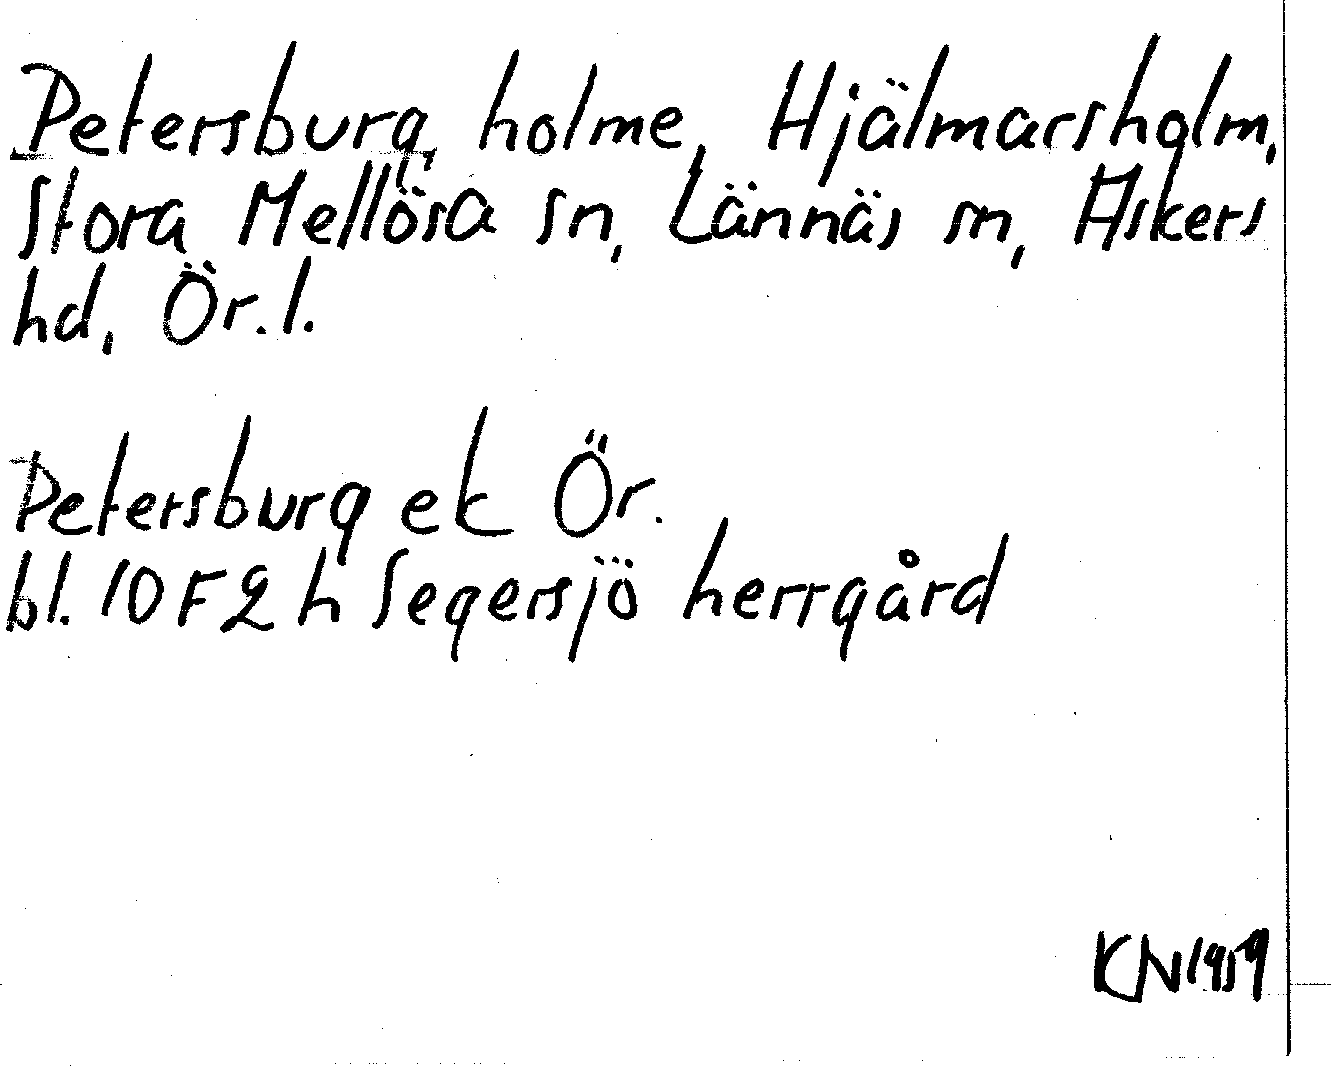 Petersburg, holme, Hjälmarsholm,
Stora Mellösa sn, Lännäs sn, Askers
hd, Ör. l.
Petersburg ek Ör.
bl. 10 F 2 h Segersjö herrgård
KN 1959